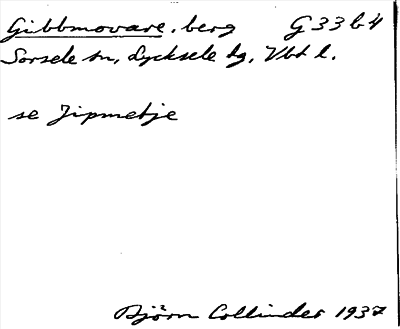 Gibbmovare, berg G33b4
Sorsele sn, Lycksele tg, Vbt l.
se Jipmetje
Björn Collinder 1937